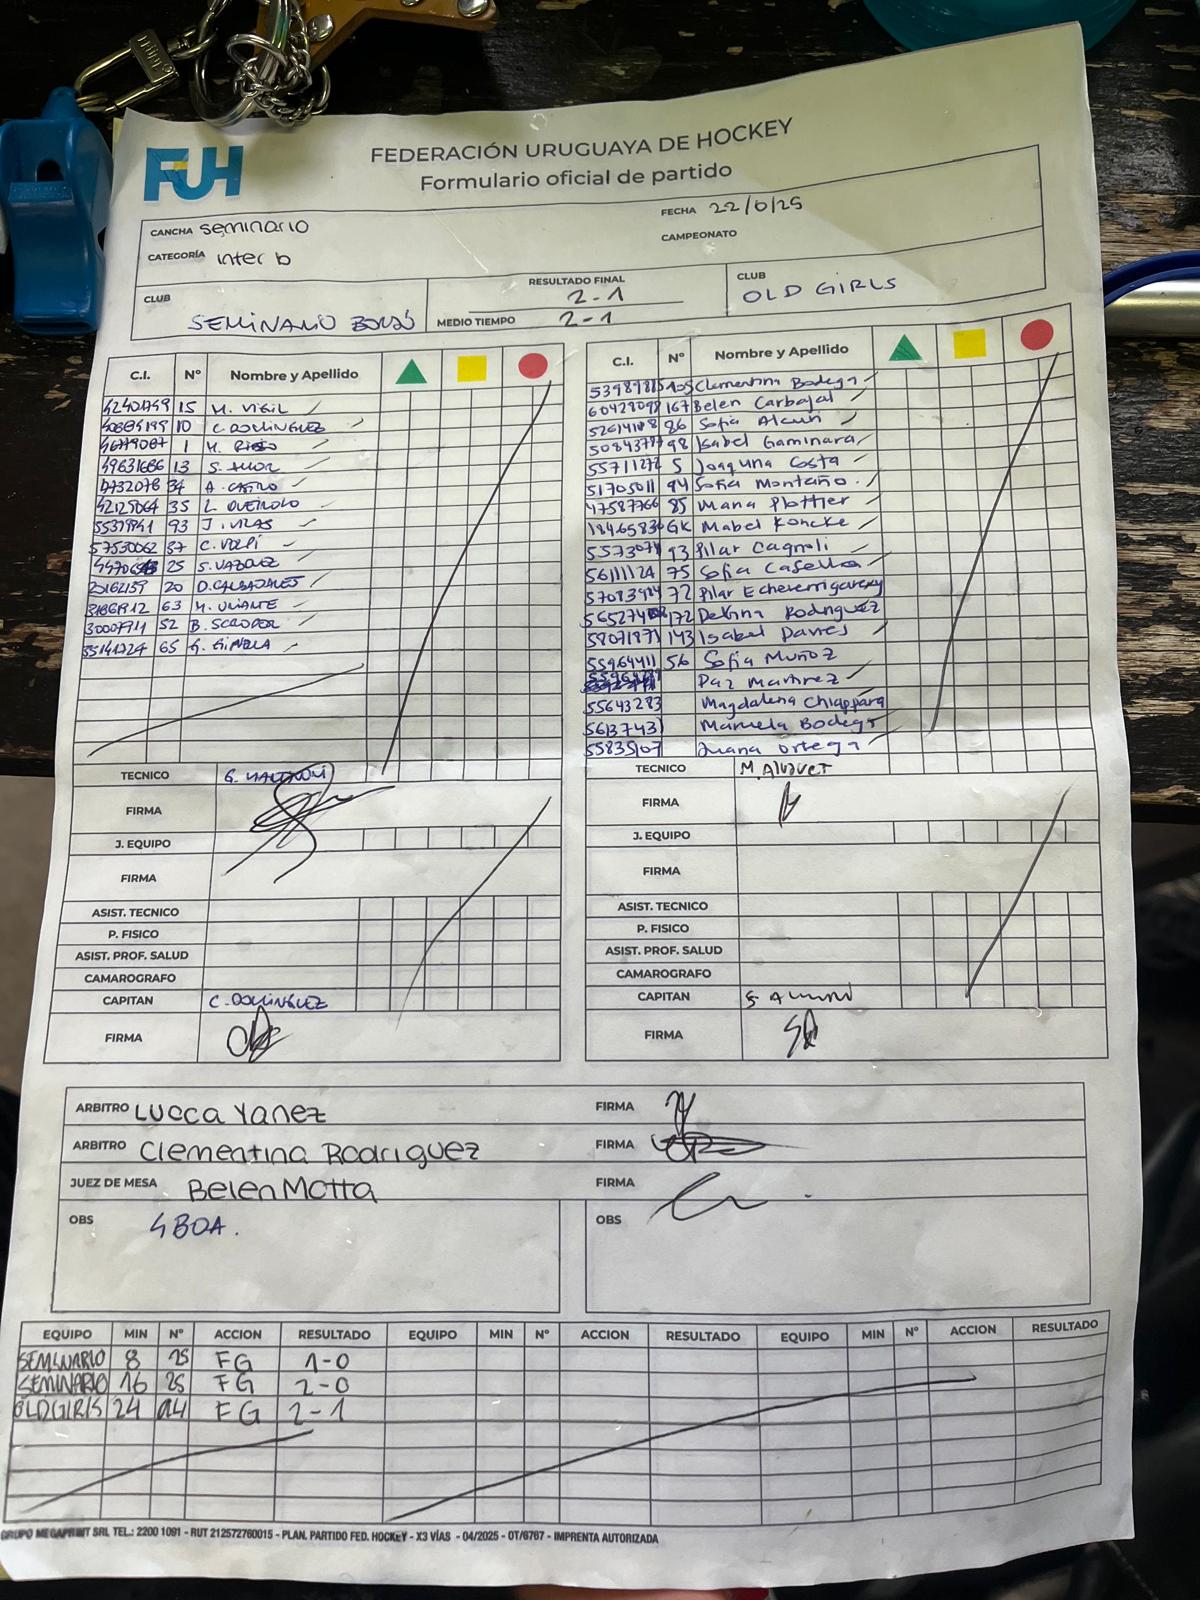 FUH
FEDERACIÓN URUGUAYA DE HOCKEY
Formulario oficial de partido
CANCHA seminario
FECHA 22/6/25
CATEGORÍA inter b
CAMPEONATO
CLUB SEMINARIO BORDÓ
RESULTADO FINAL 2-1
MEDIO TIEMPO 2-1
CLUB OLD GIRLS
C.I. Nº Nombre y Apellido
15 M. VIGIL
10 C. DOMÍNGUEZ
1 M.
49631686 13 S.
34 A. CASTRO
42129064 35 L. QUEIROLO
93 J. VIÑAS
57530062 37 C. VOLPI
25 S. VAZQUEZ
20162159 20 D. CALSADALES
63 M. URIARTE
52 B.
65 G.
C.I. Nº Nombre y Apellido
105 Clementina Bodega
60428098 167 Belen Carbajal
86 Sofia
98 Isabel Gaminara
55711272 5 Joaquina Costa
51705011 94 Sofia Montaño
47587766 85 Maria Plottier
GK Mabel Koncke
93 Pilar Cagnoli
56111124 75 Sofia Casella
72 Pilar Echeverrigaray
172 Delfina Rodriguez
58071871 143 Isabel Davies
55964411 56 Sofia Muñoz
Paz Martinez
55643283 Magdalena Chiappara
5613743 Manuela Bodega
55835107 Juana Ortega
TECNICO G.
FIRMA
J. EQUIPO
FIRMA
ASIST. TECNICO
P. FISICO
ASIST. PROF. SALUD
CAMAROGRAFO
CAPITAN C. DOMÍNGUEZ
FIRMA
TECNICO M. Alvarez
FIRMA
J. EQUIPO
FIRMA
ASIST. TECNICO
P. FISICO
ASIST. PROF. SALUD
CAMAROGRAFO
CAPITAN S
FIRMA
ARBITRO Lucca Yanez FIRMA
ARBITRO Clementina Rodriguez FIRMA
JUEZ DE MESA Belen Motta FIRMA
OBS 4 BOA.
OBS
EQUIPO MIN Nº ACCION RESULTADO EQUIPO MIN Nº ACCION RESULTADO EQUIPO MIN Nº ACCION RESULTADO
SEMINARIO 8 25 FG 1-0
SEMINARIO 16 25 FG 2-0
OLDGIRLS 24 94 FG 2-1
GRUPO MEGAPRINT SRL TEL.: 2200 1091 - RUT 212572760015 - PLAN. PARTIDO FED. HOCKEY - X3 VÍAS - 04/2025 - OT/6767 - IMPRENTA AUTORIZADA